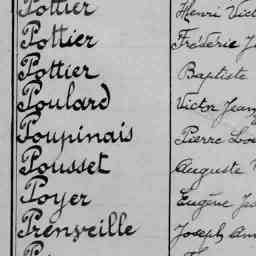 Pottier Henri Vict
Pottier Fréderic J
Pottier Baptiste
Poulard Victor Jean
Poupinais Pierre Lou
Pousset Auguste
Poyer Eugène
Prenveille Joseph